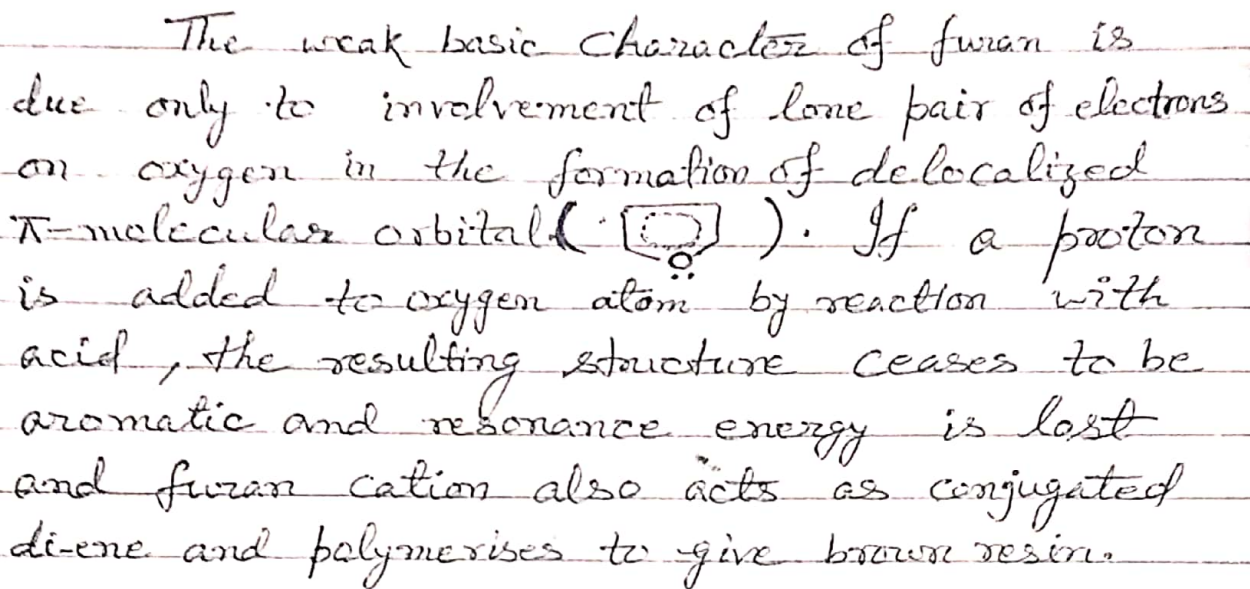 The weak basic character of furan is
due only to involvement of lone pair of electrons
on oxygen in the formation of delocalized
π-molecular orbital ( Ö ). If a proton
is added to oxygen atom by reaction with
acid, the resulting structure ceases to be
aromatic and resonance energy is lost
and furan cation also acts as conjugated
di-ene and polymerises to give brown resin.